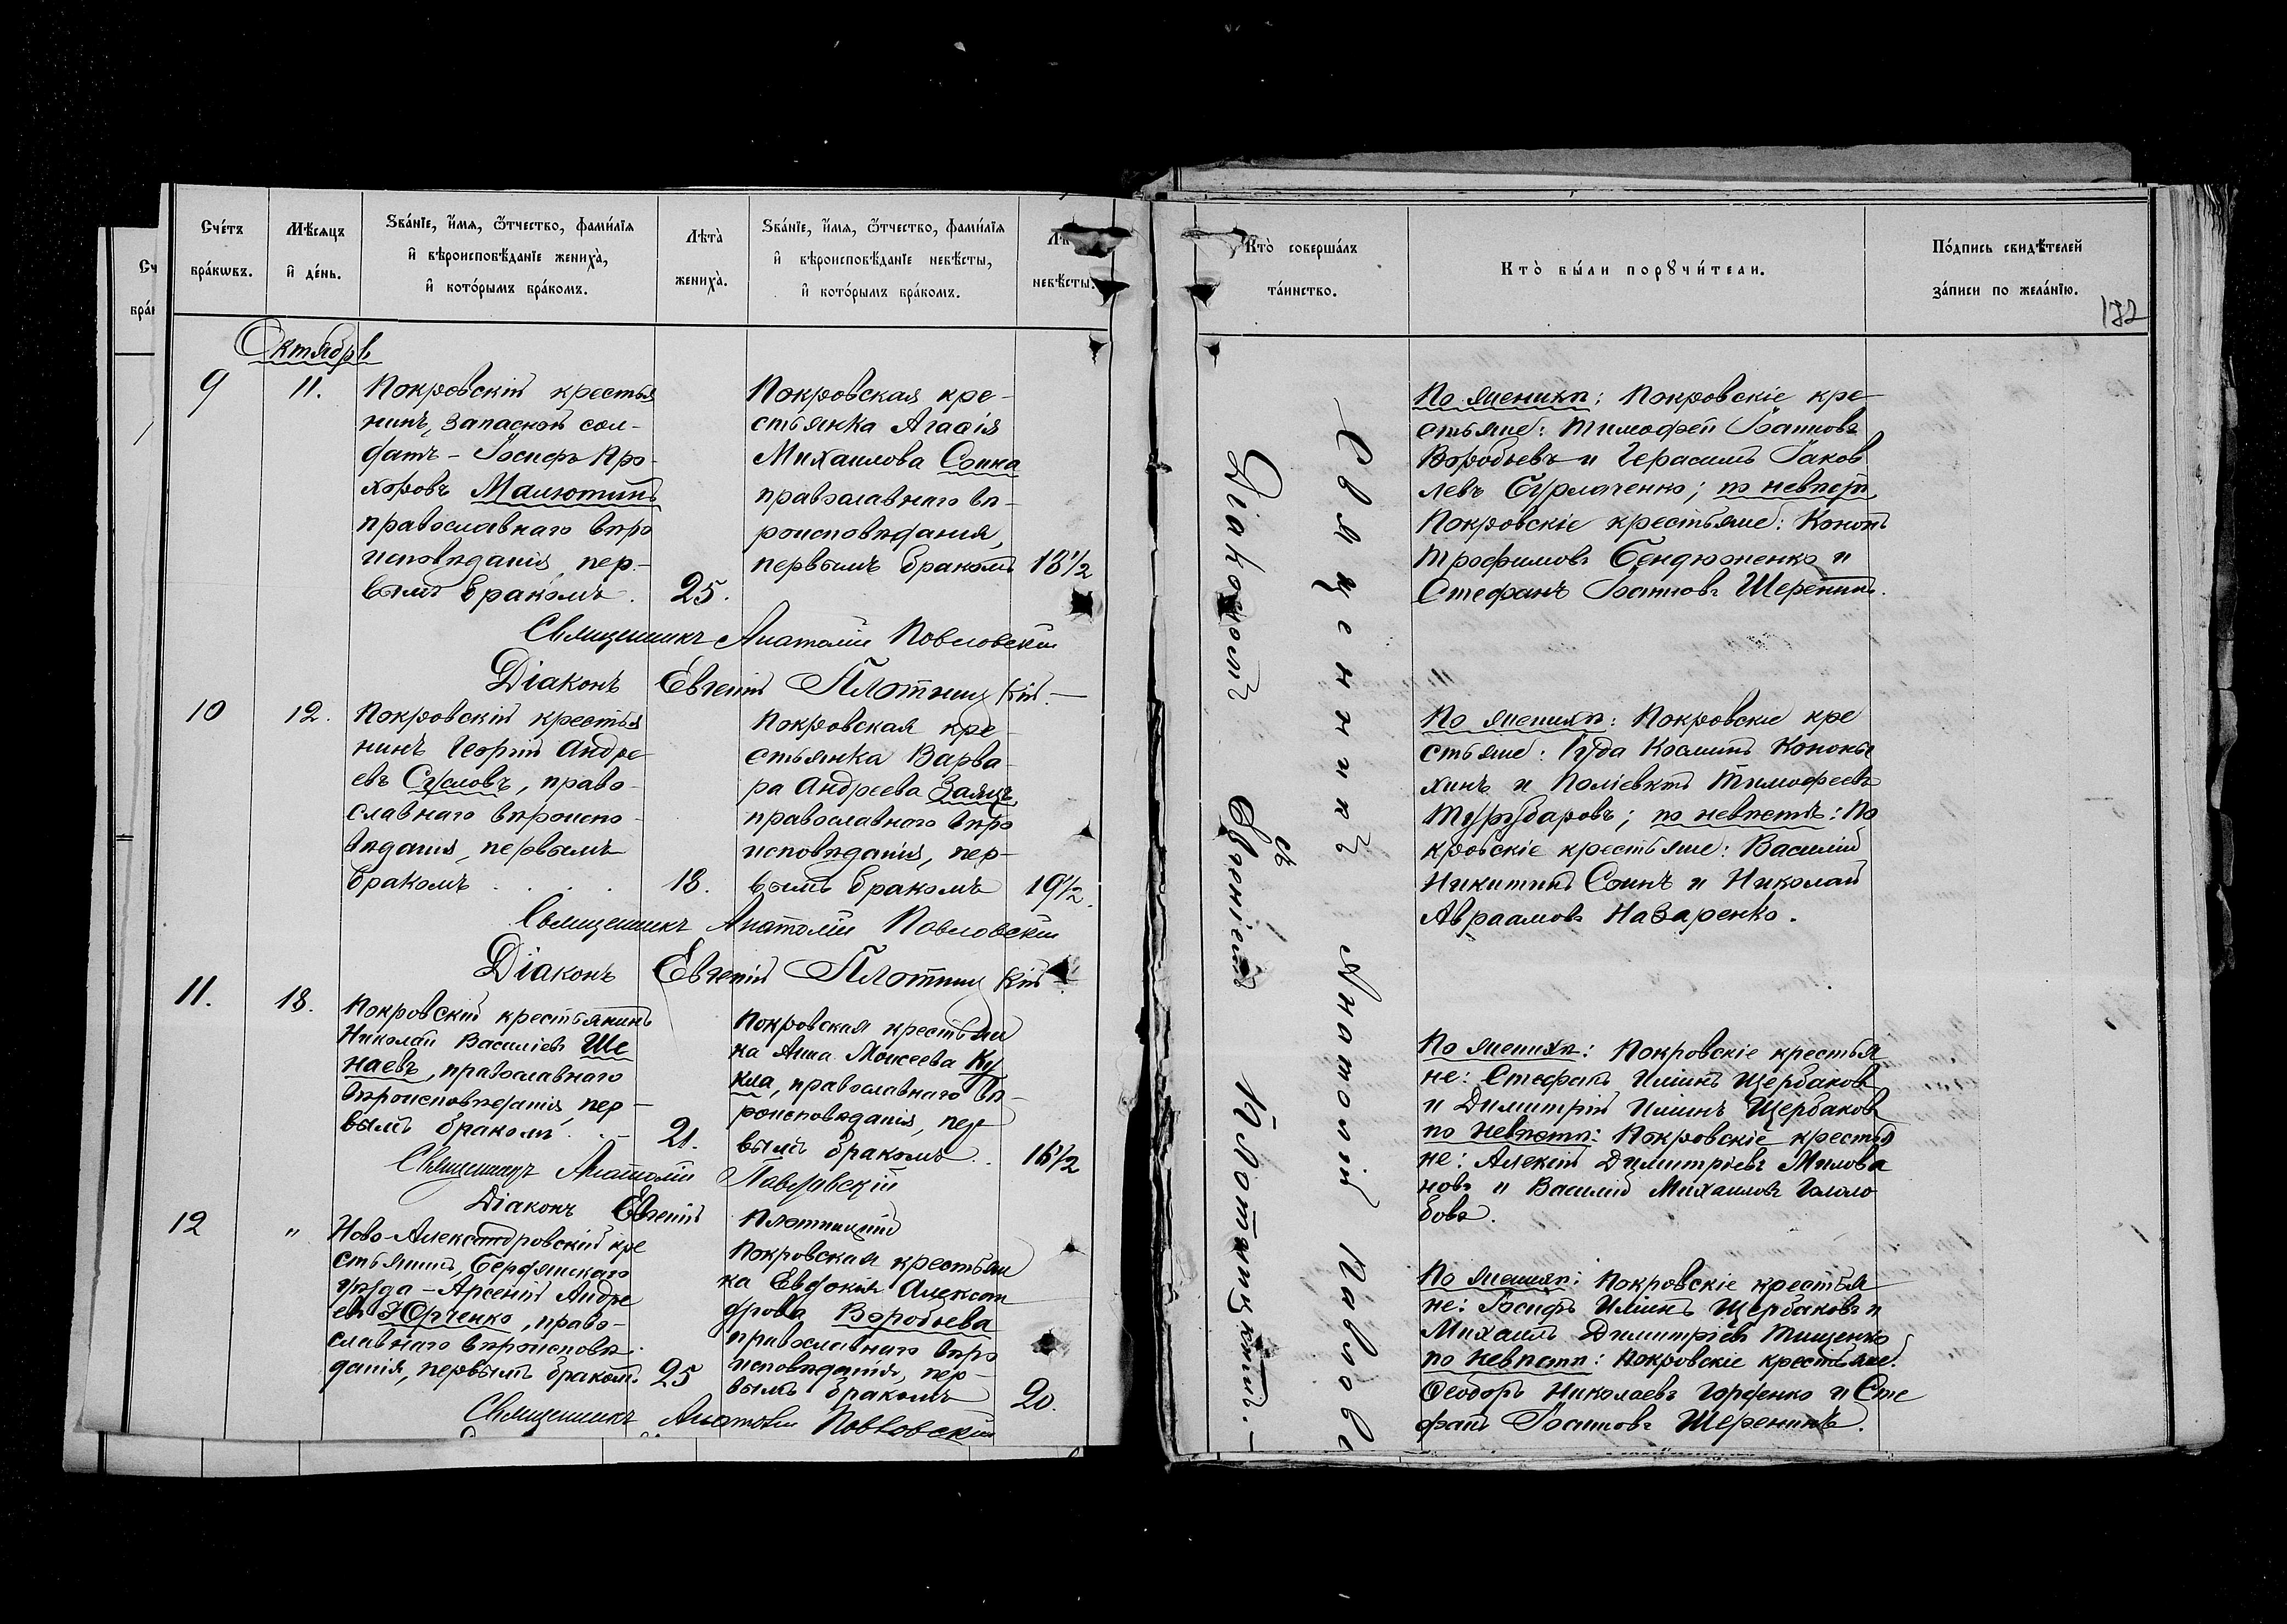 Сче́тъ
бра́кѡвъ.
Мѣ́сяцъ
и҆ де́нь.
Ѕва́нїе, и҆́мя, ѻ҆́тчество, фами́лїя
и҆ вѣроисповѣ́данїе жениха̀,
и҆ кото́рымъ бра́комъ.
Лѣта̀
жениха̀.
Ѕва́нїе, и҆́мя, ѻ҆́тчество, фами́лїя
и҆ вѣроисповѣ́данїе невѣ́сты,
и҆ кото́рымъ бра́комъ.
невѣ́сты.
Октябрь
9
11.
Покровскій крестья
нинъ, запасной сол-
датъ - Іосифъ Про-
хоровъ Малютинъ
православнаго вѣро
исповѣданія, пер-
вымъ бракомъ.
25.
Покровская кре-
стьянка Агафія
Михаилова Соина
православнаго вѣ-
роисповѣдания,
первымъ бракомъ
18½
Священникъ Анатолій Павловскій
Діаконъ Евгеній Плотницкій —
10
12.
Покровскій крестья
нинъ Георгій Андре
евъ Сусловъ, право-
славнаго вѣроиспо-
вѣданія, первымъ
бракомъ . . . .
18.
Покровская кре-
стьянка Варва-
ра Андреева Заяцъ,
православнаго вѣро
исповѣданія, пер-
вымъ бракомъ
19½.
Священникъ Анатолій Павловскій
Діаконъ Евгеній Плотницкій
11.
18.
Покровскій крестьянинъ
Николай Василіевъ Ше
наевъ, православнаго
вѣроисповѣданія, пер-
вымъ бракомъ. . -
21.
Покровская крестьян
ка Анна Моисеева Ку
кла, православнаго вѣ-
роисповѣданія, пер
вымъ бракомъ . .
16½
Священникъ Анатолій Павловскій
Діаконъ Евгеній Плотницкій
12
"
Ново-Александровскій кре
стьянинъ, Бердянскаго
уѣзда - Арсеній Андре
евъ Юрченко, право-
славнаго вѣроисповѣ-
данія, первымъ бракомъ.
25
Покровская крестьян
ка Евдокія Алексан
дрова Воробьева
православнаго вѣро
исповѣданія, пер-
вымъ бракомъ
20.
Священникъ Анатолій Павловскій
Кто̀ соверша́лъ
та́инство.
Кто̀ бы́ли порꙋчи́тели.
По́дпись свидѣ́телей
за́писи по жела́нїю.
172
Священникъ Анатолій Павловс
Діакономъ Евгеніемъ Плотницкимъ. —
съ
По женихѣ: Покровскіе кре-
стьяне: Тимофей Іоанновъ
Воробьевъ и Герасимъ Іаков
левъ Бурлаченко; по невѣстѣ,
Покровскіе крестьяне: Кононъ
Трофимовъ Бендюженко и
Стефанъ Іоанновъ Шеренинъ.
По женихѣ: Покровскіе кре
стьяне: Іуда Косминъ Кононы
хинъ и Поліевктъ Тимофеевъ
Тургубаровъ; по невѣстѣ: По
кровскіе крестьяне: Василій
Никитинъ Соинъ и Николай
Авраамовъ Назаренко.
По женихѣ: Покровскіе крестья
не: Стефанъ Иліинъ Щербаковъ
и Димитрій Иліинъ Щербаковъ
по невѣстѣ: Покровскіе крестья
не: Алексій Димитріевъ Милова
новъ и Василій Михаиловъ Гололо
бовъ.
По женихѣ: Покровскіе крестья
не: Іосифъ Иліинъ Щербаковъ и
Михаилъ Димитріевъ Тищенко
по невѣстѣ: Покровскіе крестьяне:
Ѳеодоръ Николаевъ Горденко и Сте
фанъ Іоанновъ Шеренинъ.